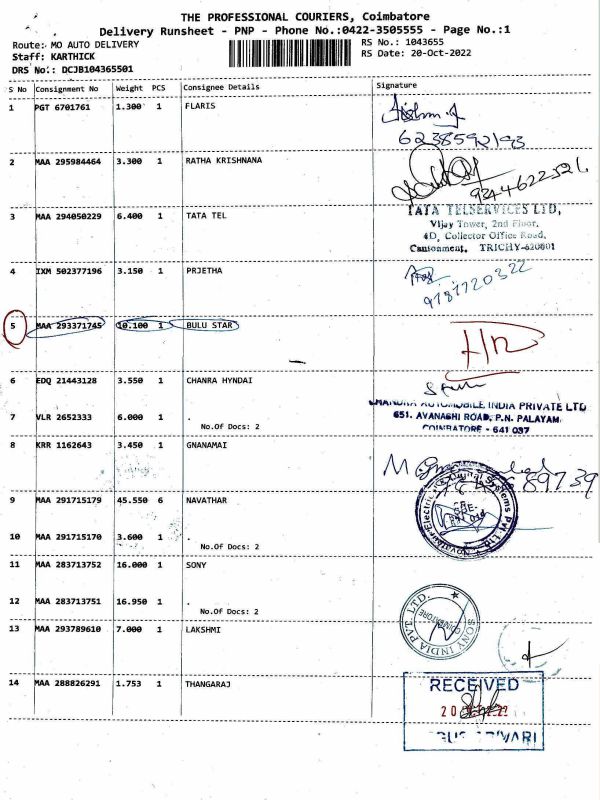 THE PROFESSIONAL COURIERS, Coimbatore
Delivery Runsheet - PNP - Phone No.:0422-3505555 - Page No.:1
Route: MO AUTO DELIVERY
RS No.: 1043655
Staff: KARTHICK
RS Date: 20-Oct-2022
DRS No.: DCJB104365501
S No Consignment No Weight PCS Consignee Details Signature
1 PGT 6701761 1.300 1 FLARIS
6238592193
2 MAA 295984464 3.300 1 RATHA KRISHNANA
9244622521
3 MAA 294050229 6.400 1 TATA TEL
TATA TELSERVICES LTD,
Vijay Tower, 2nd Floor,
4D, Collector Office Road,
Cantonment, TRICHY-620001
4 IXM 502377196 3.150 1 PRJETHA
9787720322
5 MAA 293371745 10.100 1 BULU STAR
6 EDQ 21443128 3.550 1 CHANRA HYNDAI
CHANDRA AUTOMOBILE INDIA PRIVATE LTD
651. AVANASHI ROAD, P.N. PALAYAM,
COIMBATORE - 641 037
7 VLR 2652333 6.000 1 .
No.Of Docs: 2
8 KRR 1162643 3.450 1 GNANAMAI
89739
9 MAA 291715179 45.550 6 NAVATHAR
10 MAA 291715170 3.600 1 .
No.Of Docs: 2
11 MAA 283713752 16.000 1 SONY
12 MAA 283713751 16.950 1 .
No.Of Docs: 2
SONY INDIA PVT. LTD.
COIMBATORE
13 MAA 293789610 7.000 1 LAKSHMI
14 MAA 288826291 1.753 1 THANGARAJ
RECEIVED
20